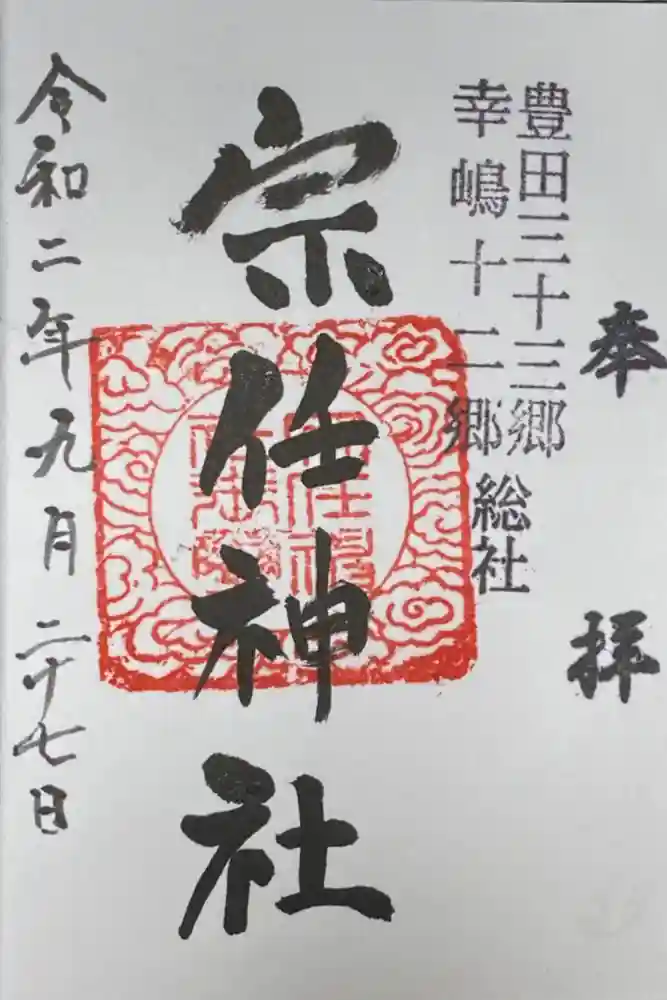 奉拝
豊田三十三郷
幸嶋十二郷
総社
宗任神社
令和二年九月二十七日